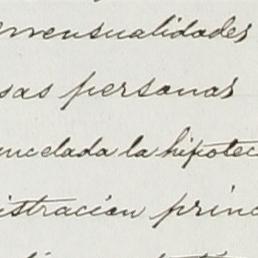 mensualidades
sas personas
ancelada la hipotec
istracion princ